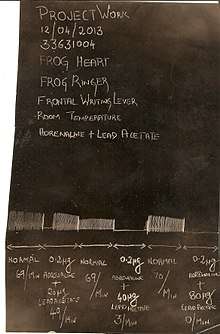 PROJECT WORK
12/04/2013
33631004
FROG HEART
FROG RINGER
FRONTAL WRITING LEVER
ROOM TEMPERATURE
ADRENALINE + LEAD ACETATE
NORMAL
69/MIN
0.2µg
ADRENALINE
+
20µg
LEAD ACETATE
49/
MIN
NORMAL
69/
MIN
0.2µg
ADRENALINE
+
40µg
LEAD ACETATE
31/MIN
NORMAL
70/
MIN
0.2µg
ADRENALINE
+
80µg
LEAD ACETATE
0/MIN